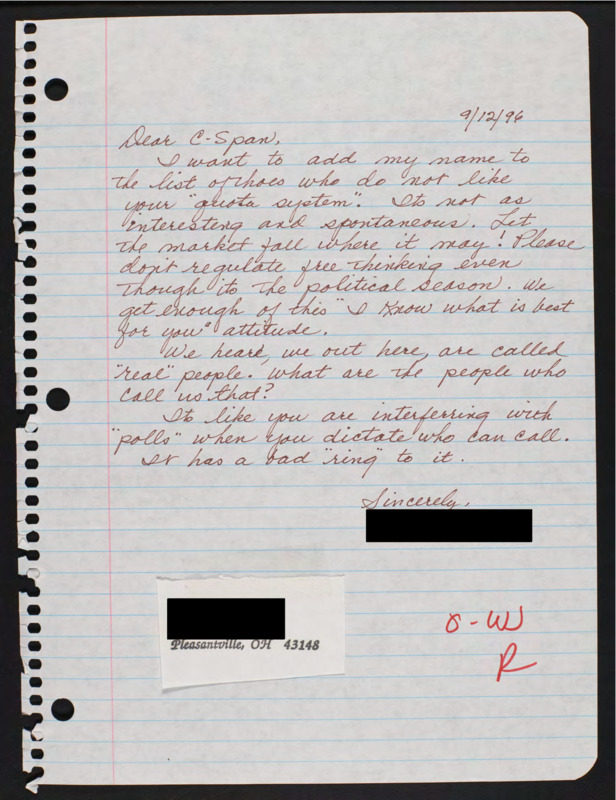 9/12/96
Dear C-Span,
I want to add my name to
the list of thoes who do not like
your "quota system". Its not as
interesting and spontaneous. Let
the market fall where it may! Please
don't regulate free thinking even
though its the political season. We
get enough of this "I know what is best
for you" attitude.
We heard, we out here, are called
"real" people. What are the people who
call us that?
Its like you are interferring with
"polls" when you dictate who can call.
It has a bad "ring" to it.
Sincerely,
Pleasantville, OH 43148
R